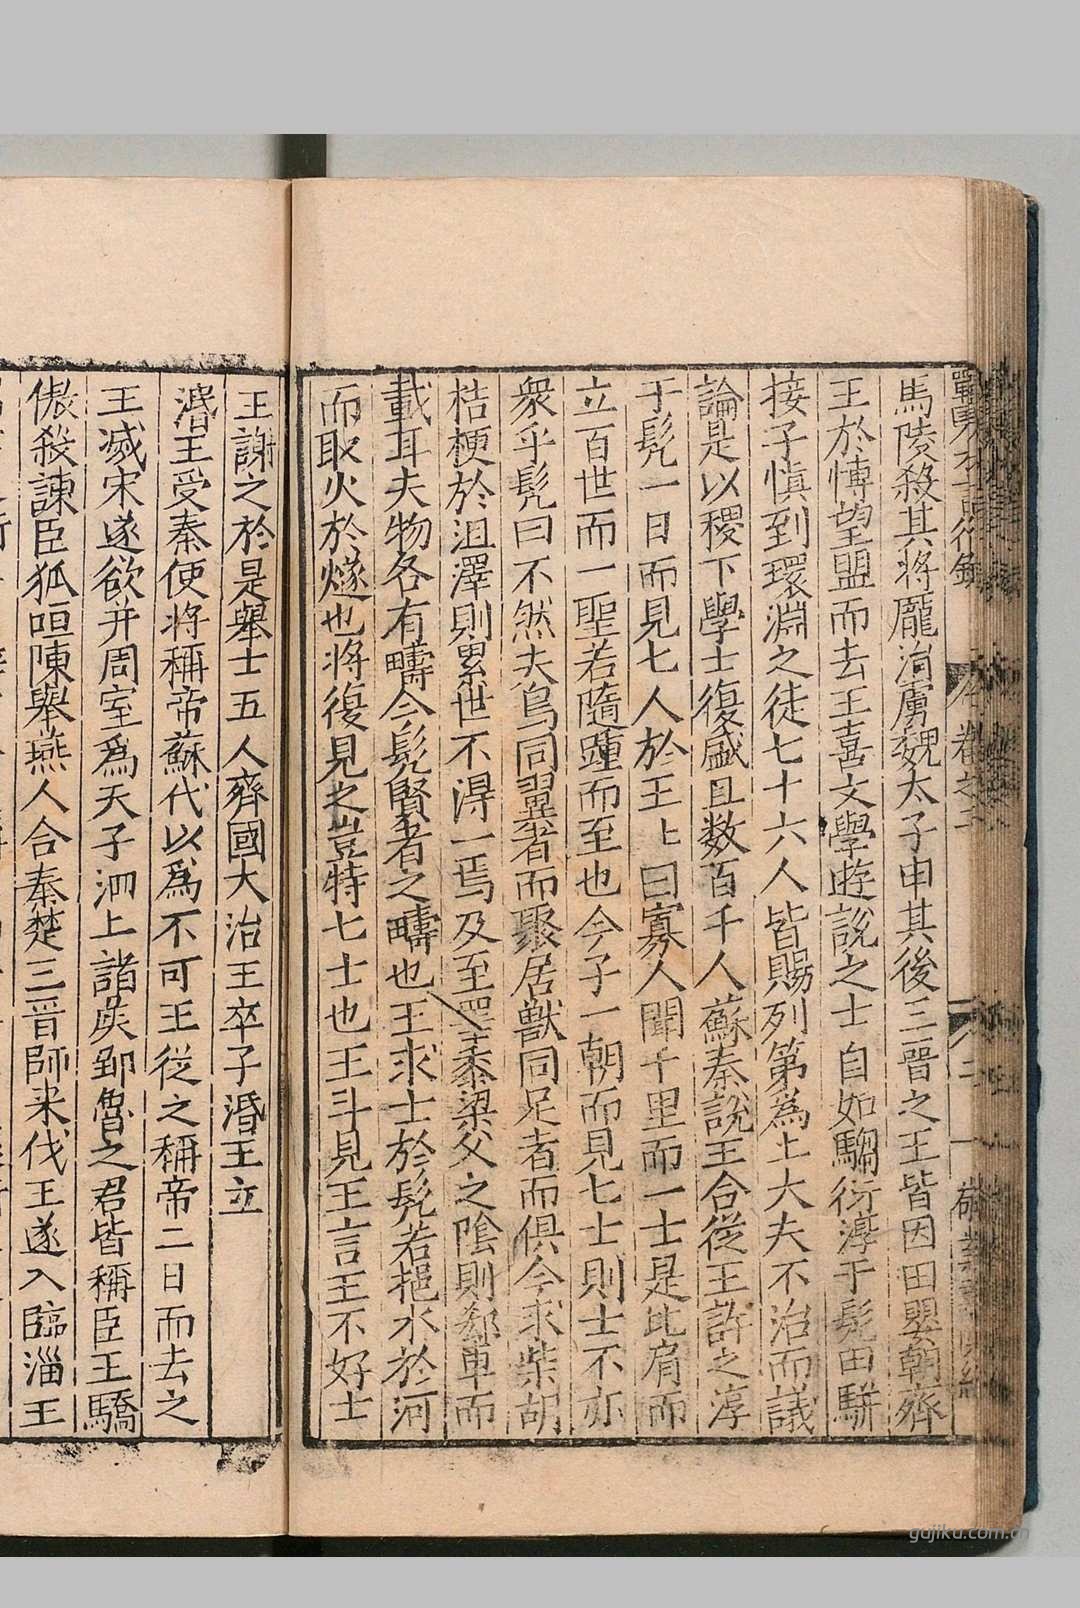 馬陵殺其將龐涓虜魏太子申其後三晉之王皆因田嬰朝齊
王於博望盟而去王喜文學遊說之士自如騶衍淳于髡田駢
接子慎到環淵之徒七十六人皆賜列第為上大夫不治而議
論是以稷下學士復盛且数百千人蘇秦說王合從王許之淳
于髡一日而見七人於王〻曰寡人聞千里而一士是比肩而
立百世而一聖若隨踵而至也今子一朝而見七士則士不亦
衆乎髡曰不然夫鳥同翼者而聚居獸同足者而俱今求柴胡
桔梗於沮澤則累世不得一焉及至睪黍梁父之陰則郄車而
載耳夫物各有疇今髡賢者之疇也王求士於髡若挹水於河
而取火於燧也將復見之豈特七士也王斗見王言王不好士
王謝之於是舉士五人齊國大治王卒子湣王立
湣王受秦使將稱帝蘇代以爲不可王從之稱帝二日而去之
王滅宋遂欲并周室爲天子泗上諸侯鄒魯之君皆稱臣王驕
傲殺諫臣狐咺陳舉燕人合秦楚三晉師来伐王遂入臨淄王
gujiku.com.cn